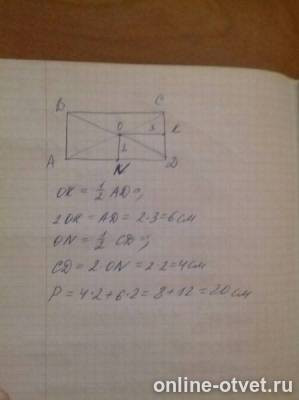 B C
O 3 K
2
A N D
OK = 1/2 AD =>
2OK = AD = 2·3 = 6 см
ON = 1/2 CD =>
CD = 2·ON = 2·2 = 4 см
P = 4·2+6·2 = 8+12 = 20 см
online-otvet.ru